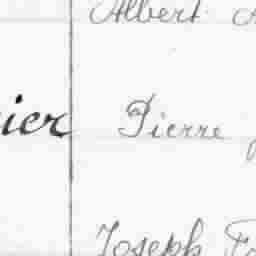 Albert
ier Pierre
Joseph